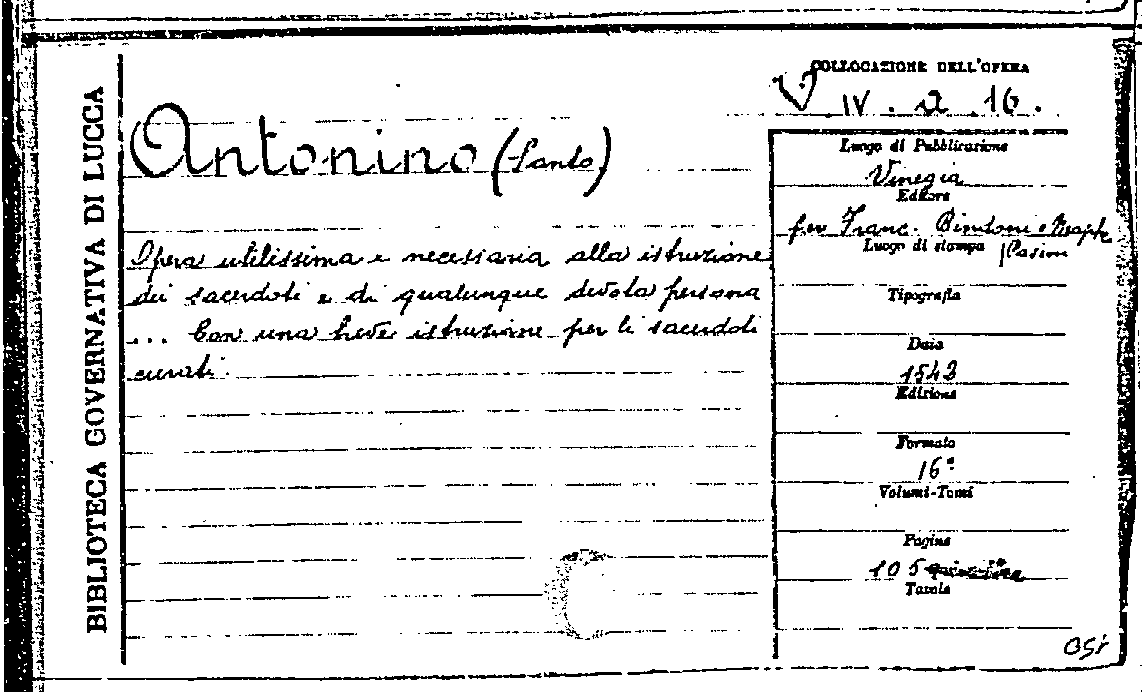 BIBLIOTECA GOVERNATIVA DI LUCCA
COLLOCAZIONE DELL'OPERA
IV. 16.
Antonino (Santo)
Opera utilissima e necessaria alla istruzione
dei sacerdoti e di qualunque devota persona
... Con una breve istruzione per li sacerdoti
curati.
Luogo di Pubblicazione
Vinegia
Editore
per Franc. Bindoni e
Pasini
Luogo di stampa
Tipografia
Data
1543
Edizione
Formato
16°
Volumi-Tomi
Pagine
105
Tavole